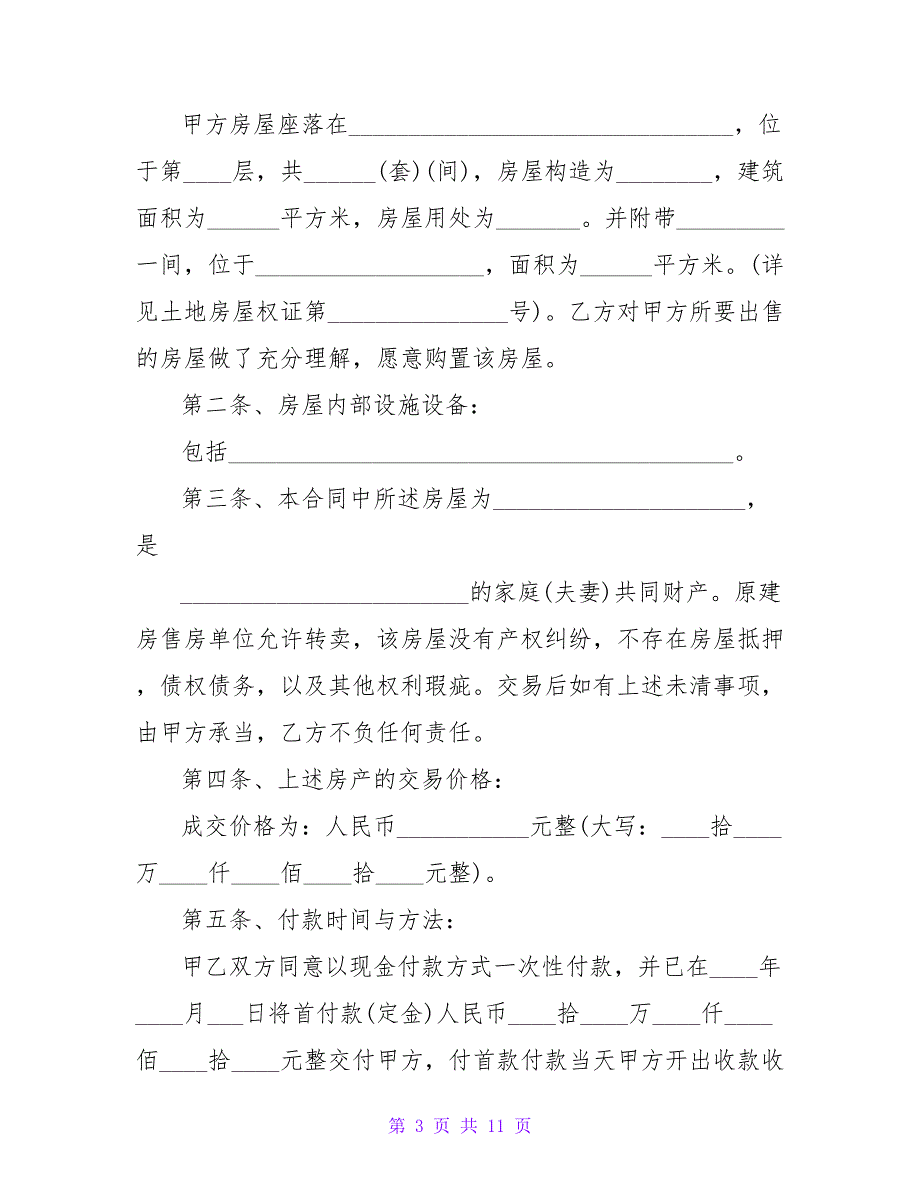 甲方房屋座落在________________________________，位
于第____层，共______(套)(间)，房屋构造为________，建筑
面积为______平方米，房屋用处为_______。并附带_________
一间，位于___________________，面积为______平方米。(详
见土地房屋权证第_______________号)。乙方对甲方所要出售
的房屋做了充分理解，愿意购置该房屋。
第二条、房屋内部设施设备：
包括__________________________________________。
第三条、本合同中所述房屋为_____________________，
是
________________________的家庭(夫妻)共同财产。原建
房售房单位允许转卖，该房屋没有产权纠纷，不存在房屋抵押
，债权债务，以及其他权利瑕疵。交易后如有上述未清事项，
由甲方承当，乙方不负任何责任。
第四条、上述房产的交易价格：
成交价格为：人民币___________元整(大写：____拾____
万____仟____佰____拾____元整)。
第五条、付款时间与方法：
甲乙双方同意以现金付款方式一次性付款，并已在____年
____月___日将首付款(定金)人民币____拾____万____仟____
佰____拾____元整交付甲方，付首款付款当天甲方开出收款收
第 3 页 共 11 页